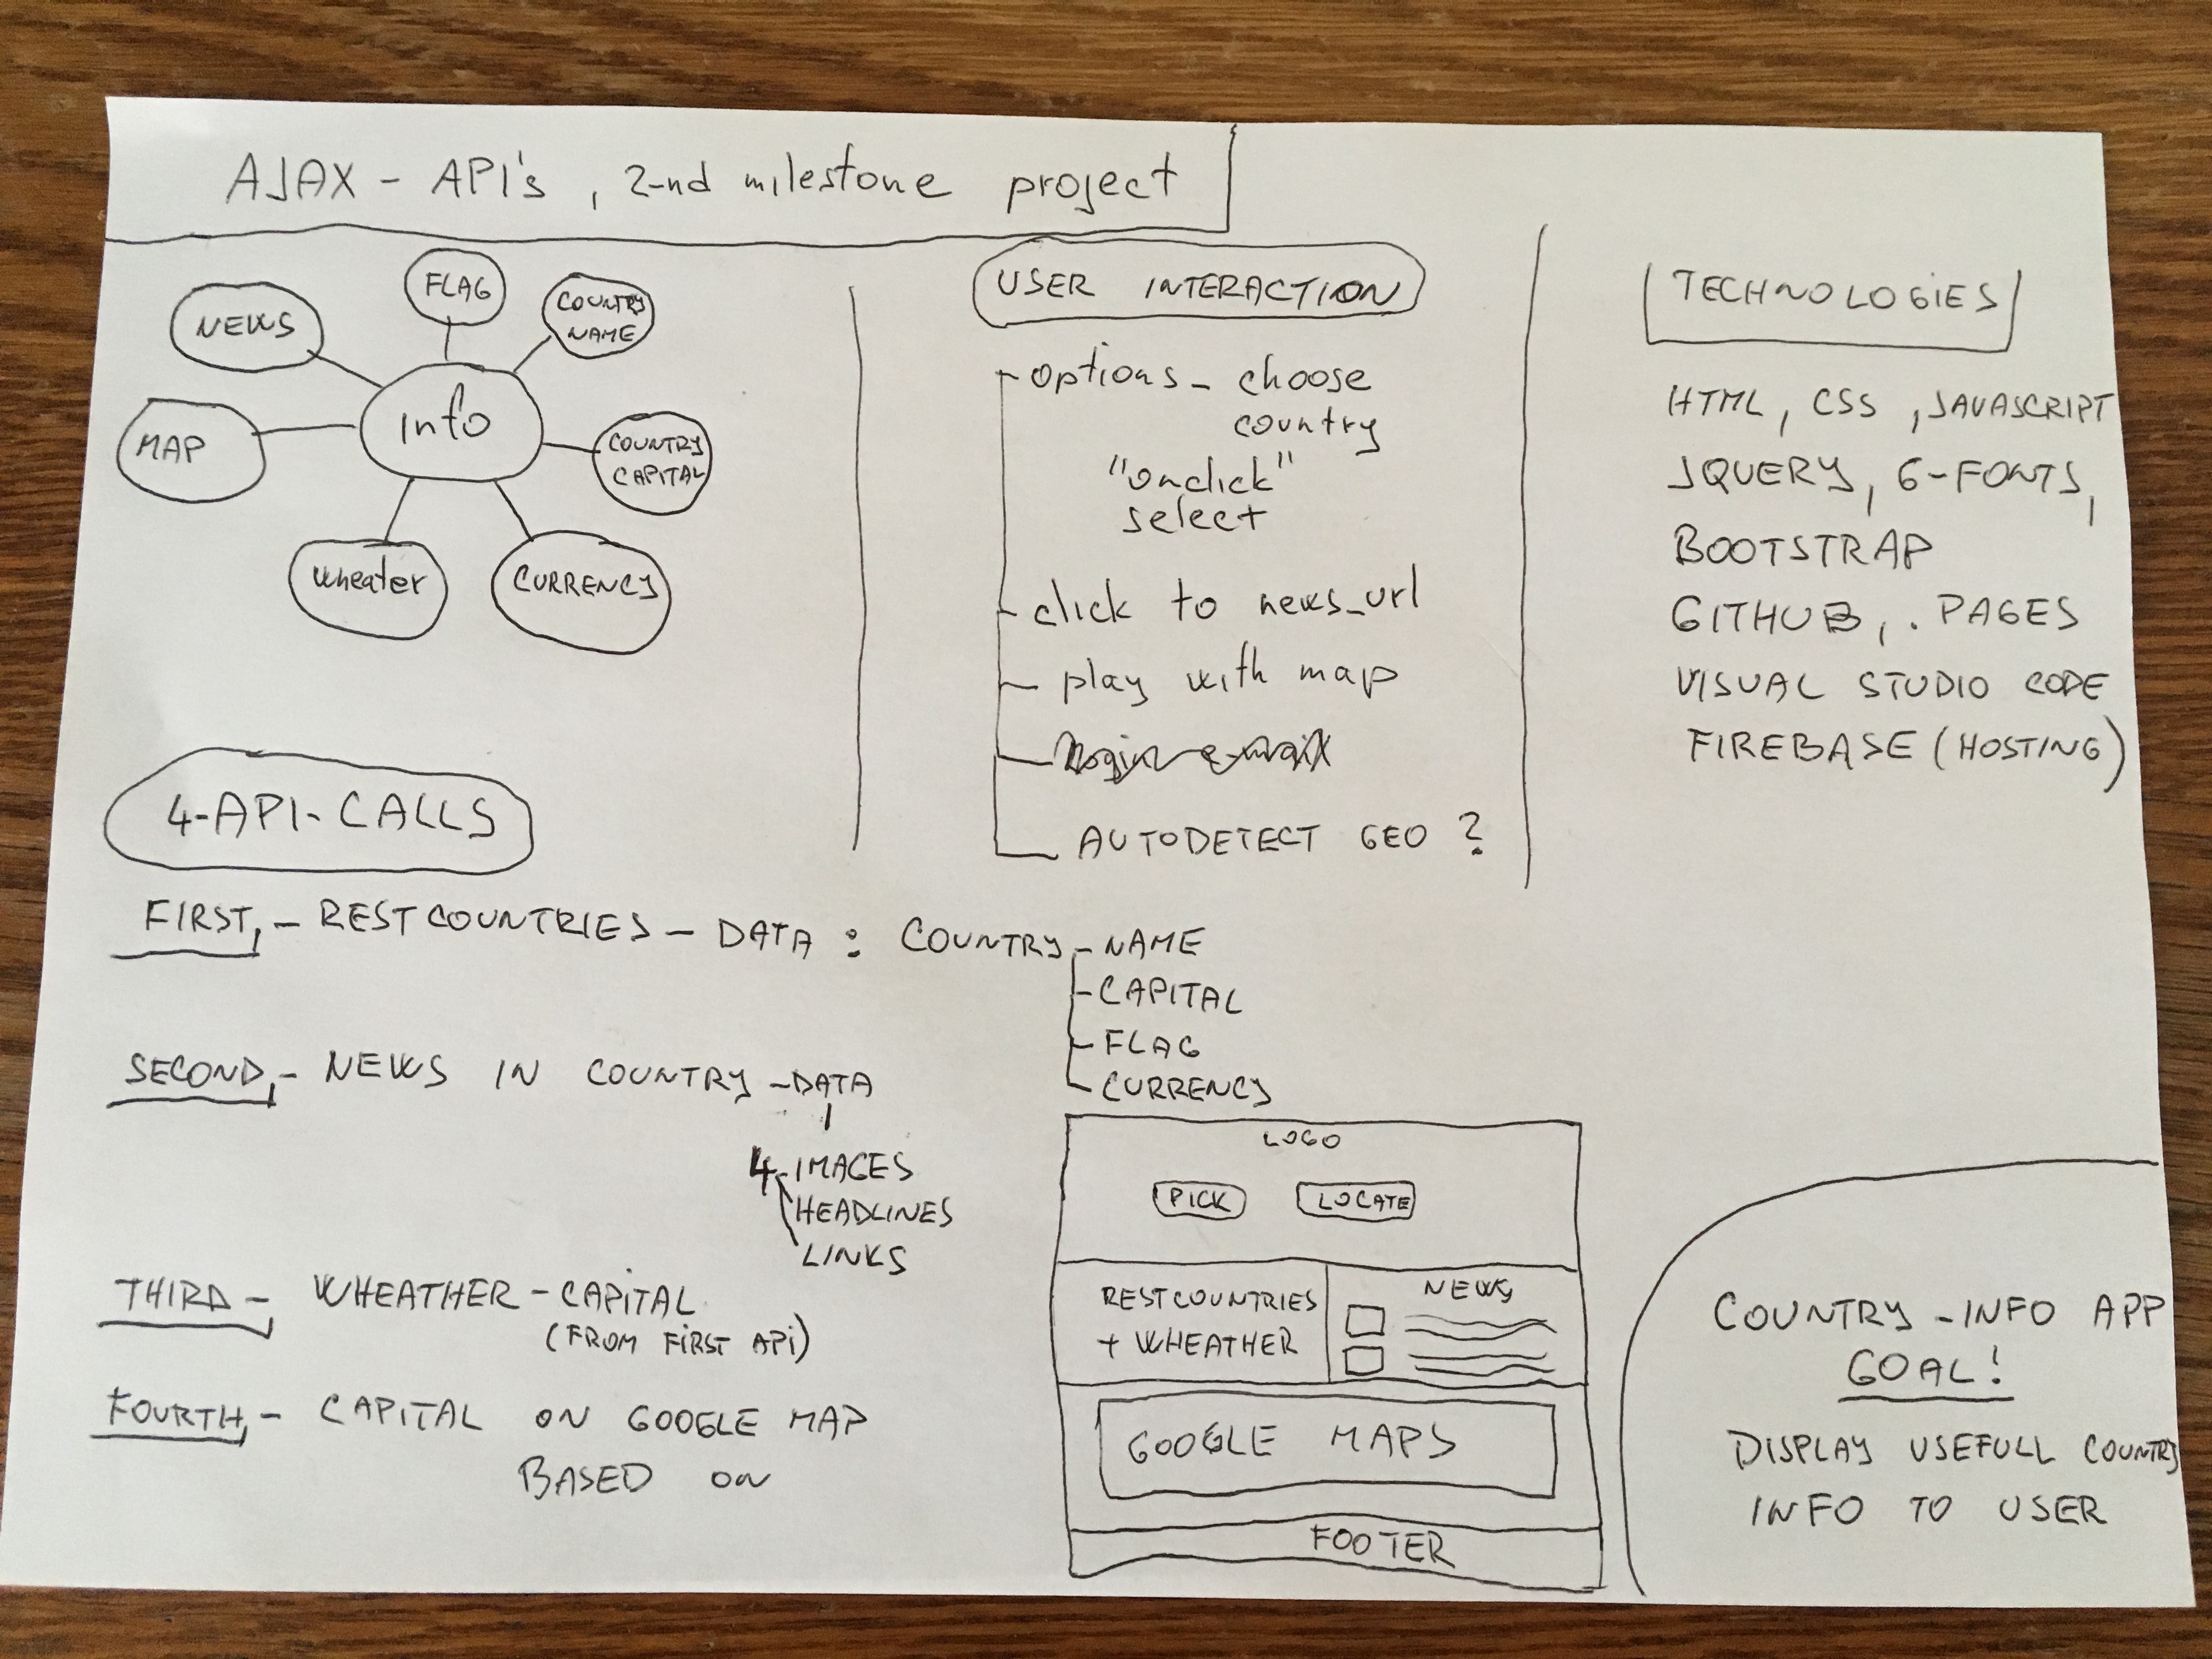 AJAX - API's , 2-nd milestone project
NEWS
FLAG
COUNTRY
NAME
MAP
Info
COUNTRY
CAPITAL
Wheater
CURRENCY
USER INTERACTION
options - choose
country
"onclick"
select
click to news_url
play with map
AUTODETECT GEO ?
TECHNOLOGIES
HTML, CSS, JAVASCRIPT
JQUERY, G-FONTS,
BOOTSTRAP
GITHUB, . PAGES
VISUAL STUDIO CODE
FIREBASE (HOSTING)
4-API-CALLS
FIRST, - RESTCOUNTRIES - DATA : COUNTRY - NAME
- CAPITAL
- FLAG
- CURRENCY
SECOND, - NEWS IN COUNTRY - DATA
4 - IMAGES
HEADLINES
LINKS
THIRD - WHEATHER - CAPITAL
(FROM FIRST API)
FOURTH, - CAPITAL ON GOOGLE MAP
BASED ON
LOGO
PICK LOCATE
RESTCOUNTRIES
+ WHEATHER
NEWS
GOOGLE MAPS
FOOTER
COUNTRY - INFO APP
GOAL!
DISPLAY USEFULL COUNTRY
INFO TO USER